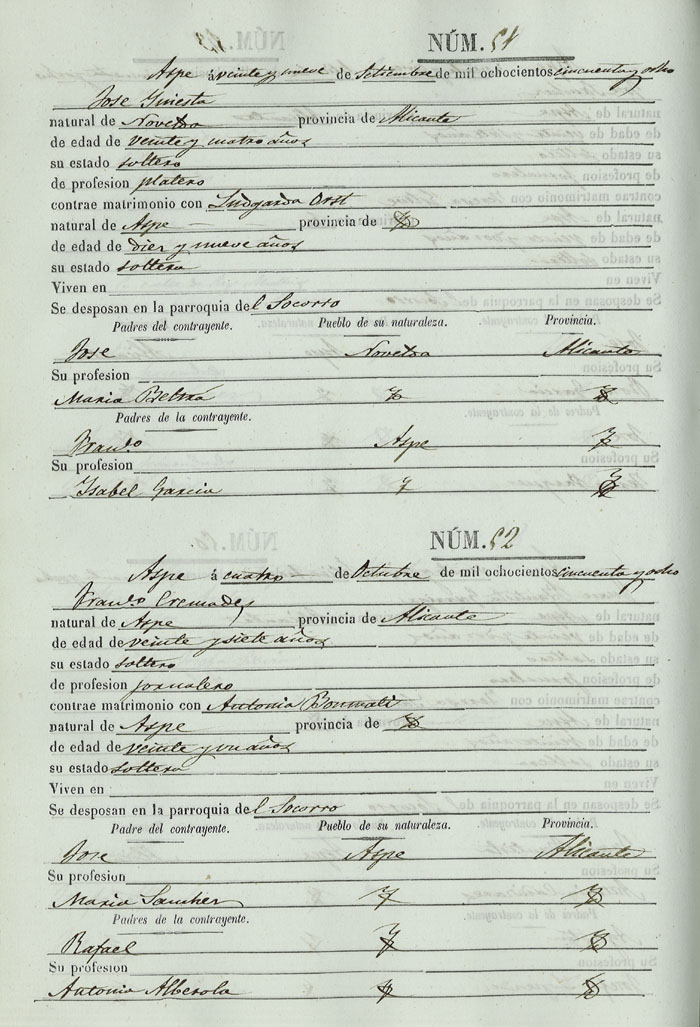 NÚM. 51
Aspe á veinte y nueve de Setiembre de mil ochocientos cincuenta y ocho
Jose Giniesta
natural de Novelda provincia de Alicante
de edad de veinte y cuatro años
su estado soltero
de profesion platero
contrae matrimonio con
natural de Aspe provincia de
de edad de diez y nueve años
su estado soltera
Viven en
Se desposan en la parroquia del Socorro
Padres del contrayente. Pueblo de su naturaleza. Provincia.
Jose Novelda Alicante
Su profesion
Maria Beltrá
Padres de la contrayente.
Franco Aspe
Su profesion
Isabel Garcia
NÚM. 52
Aspe á cuatro de Octubre de mil ochocientos cincuenta y ocho
Franco Cremades
natural de Aspe provincia de Alicante
de edad de veinte y siete años
su estado soltero
de profesion jornalero
contrae matrimonio con Antonia Bonmati
natural de Aspe provincia de
de edad de veinte y un años
su estado soltera
Viven en
Se desposan en la parroquia del Socorro
Padre del contrayente. Pueblo de su naturaleza. Provincia.
Jose Aspe Alicante
Su profesion
Maria Sanchez
Padres de la contrayente.
Rafael
Su profesion
Antonia Alberola